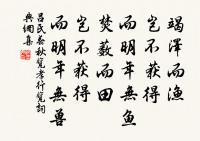 竭澤而漁
豈不獲得
而明年無魚
焚藪而田
豈不獲得
而明年無獸
呂氏春秋覽孝行覽詞
典網集